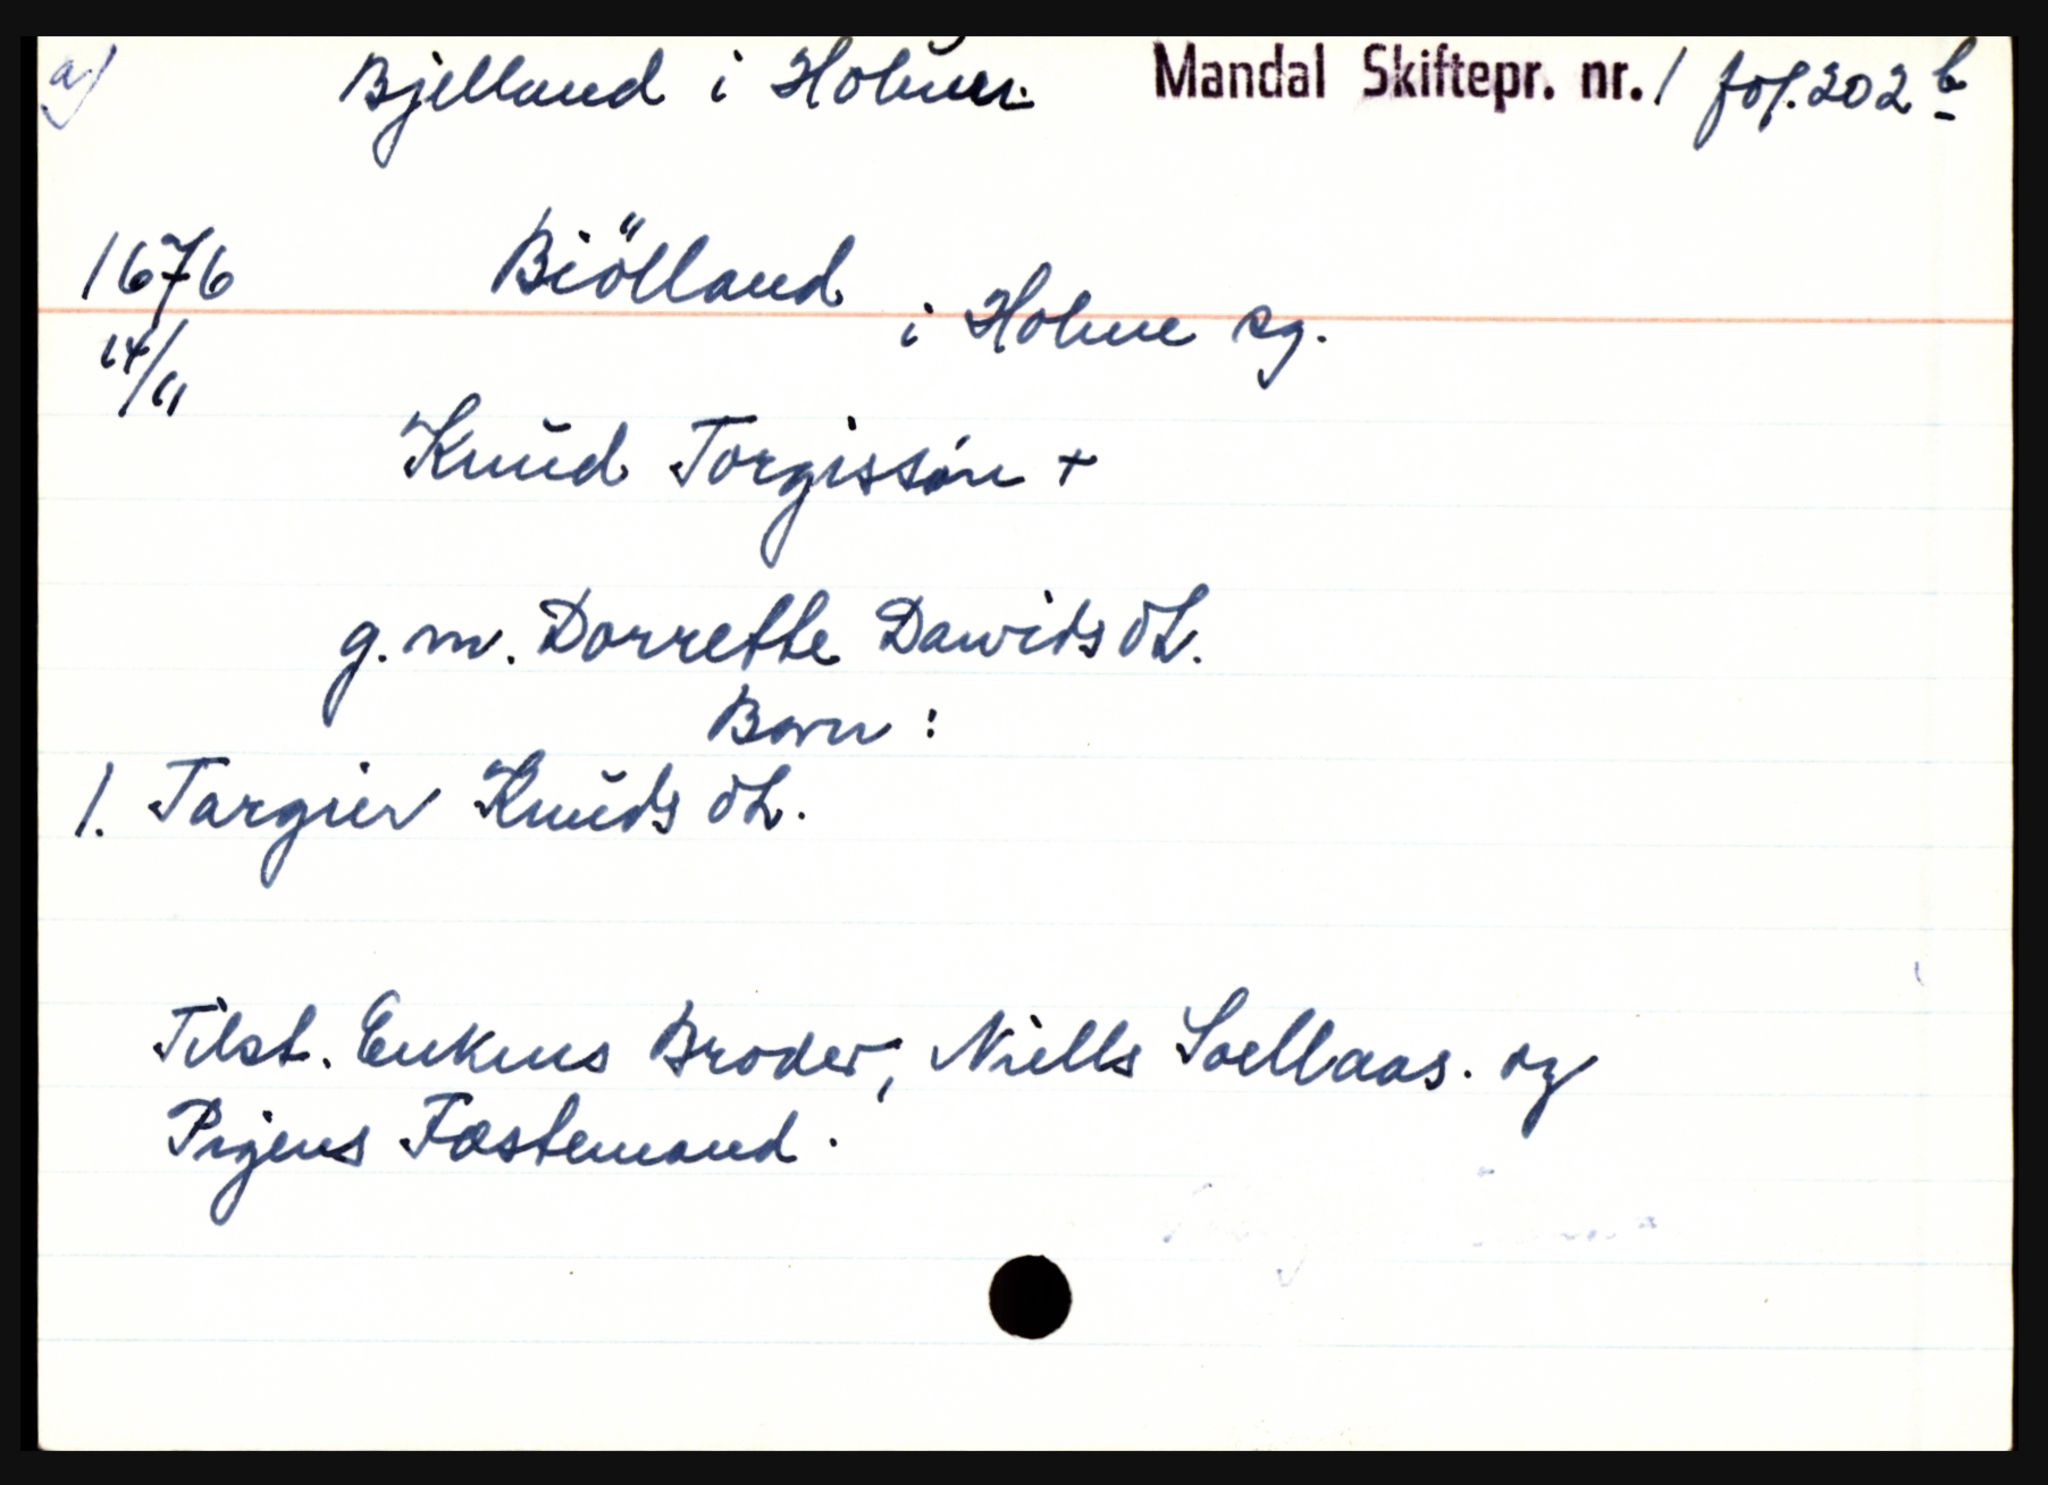 a) Bjelland i Holum Mandal Skiftepr. nr. 1 fol. 202 b
1676 Biölland
i Holme sg.
14/11
Knud Torgissøn +
g. m. Dorrette Dawids dt.
Børn :
1. Targier Knuds dt.
Tilst. Enkens Broder, Niells Soellaas. og
Pigens Fæstemand.